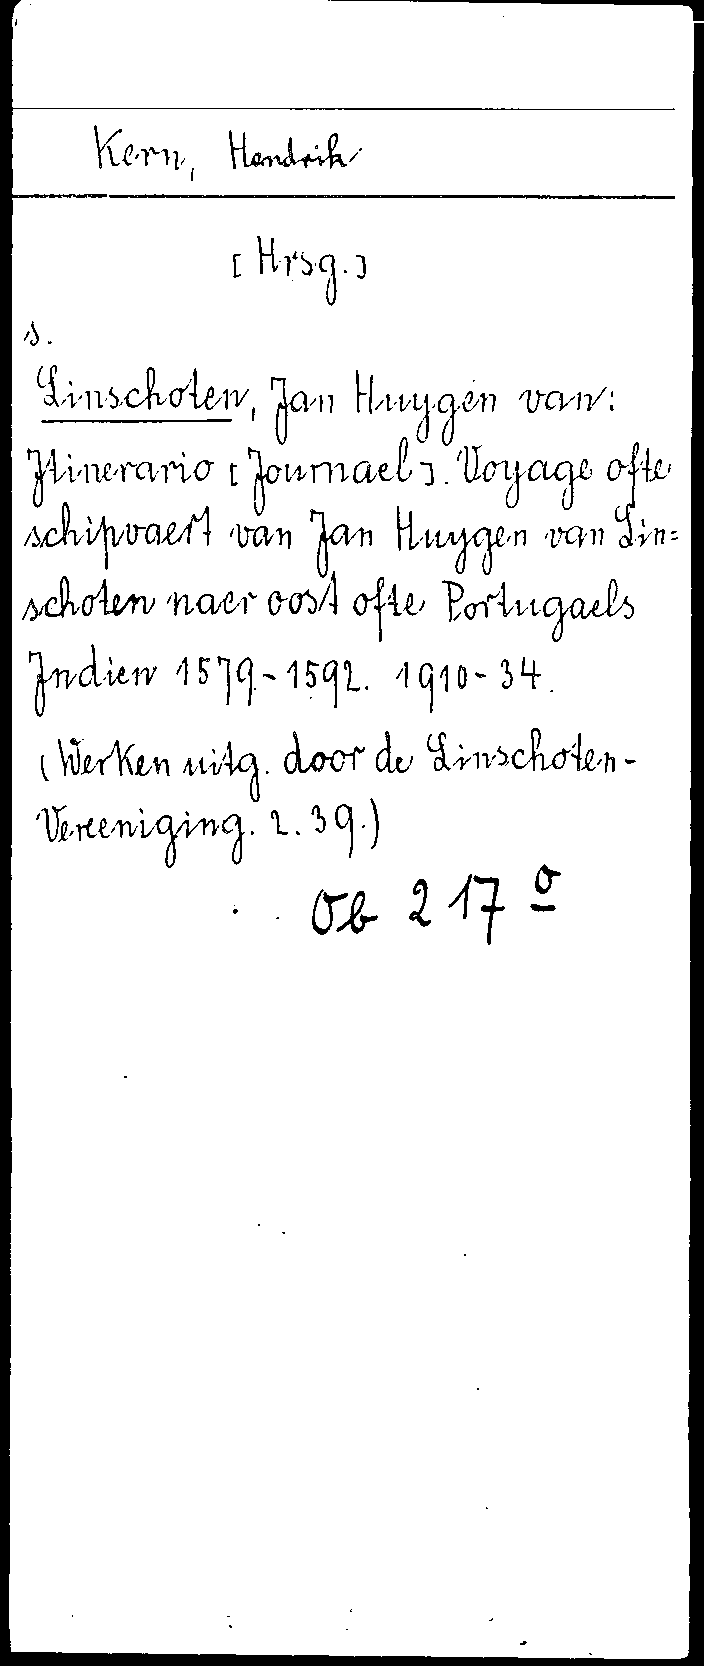 Kern, Hendrik
[Hrsg.]
s.
Linschoten, Jan Huygen van:
Itinerario [Journael]. Voyage ofte
schipvaert van Jan Huygen van Lin=
schoten naer oost ofte Portugaels
Indien 1579-1592. 1910-34.
(Werken uitg. door de Linschoten-
Vereeniging. 2. 39.)
Ob 217 o